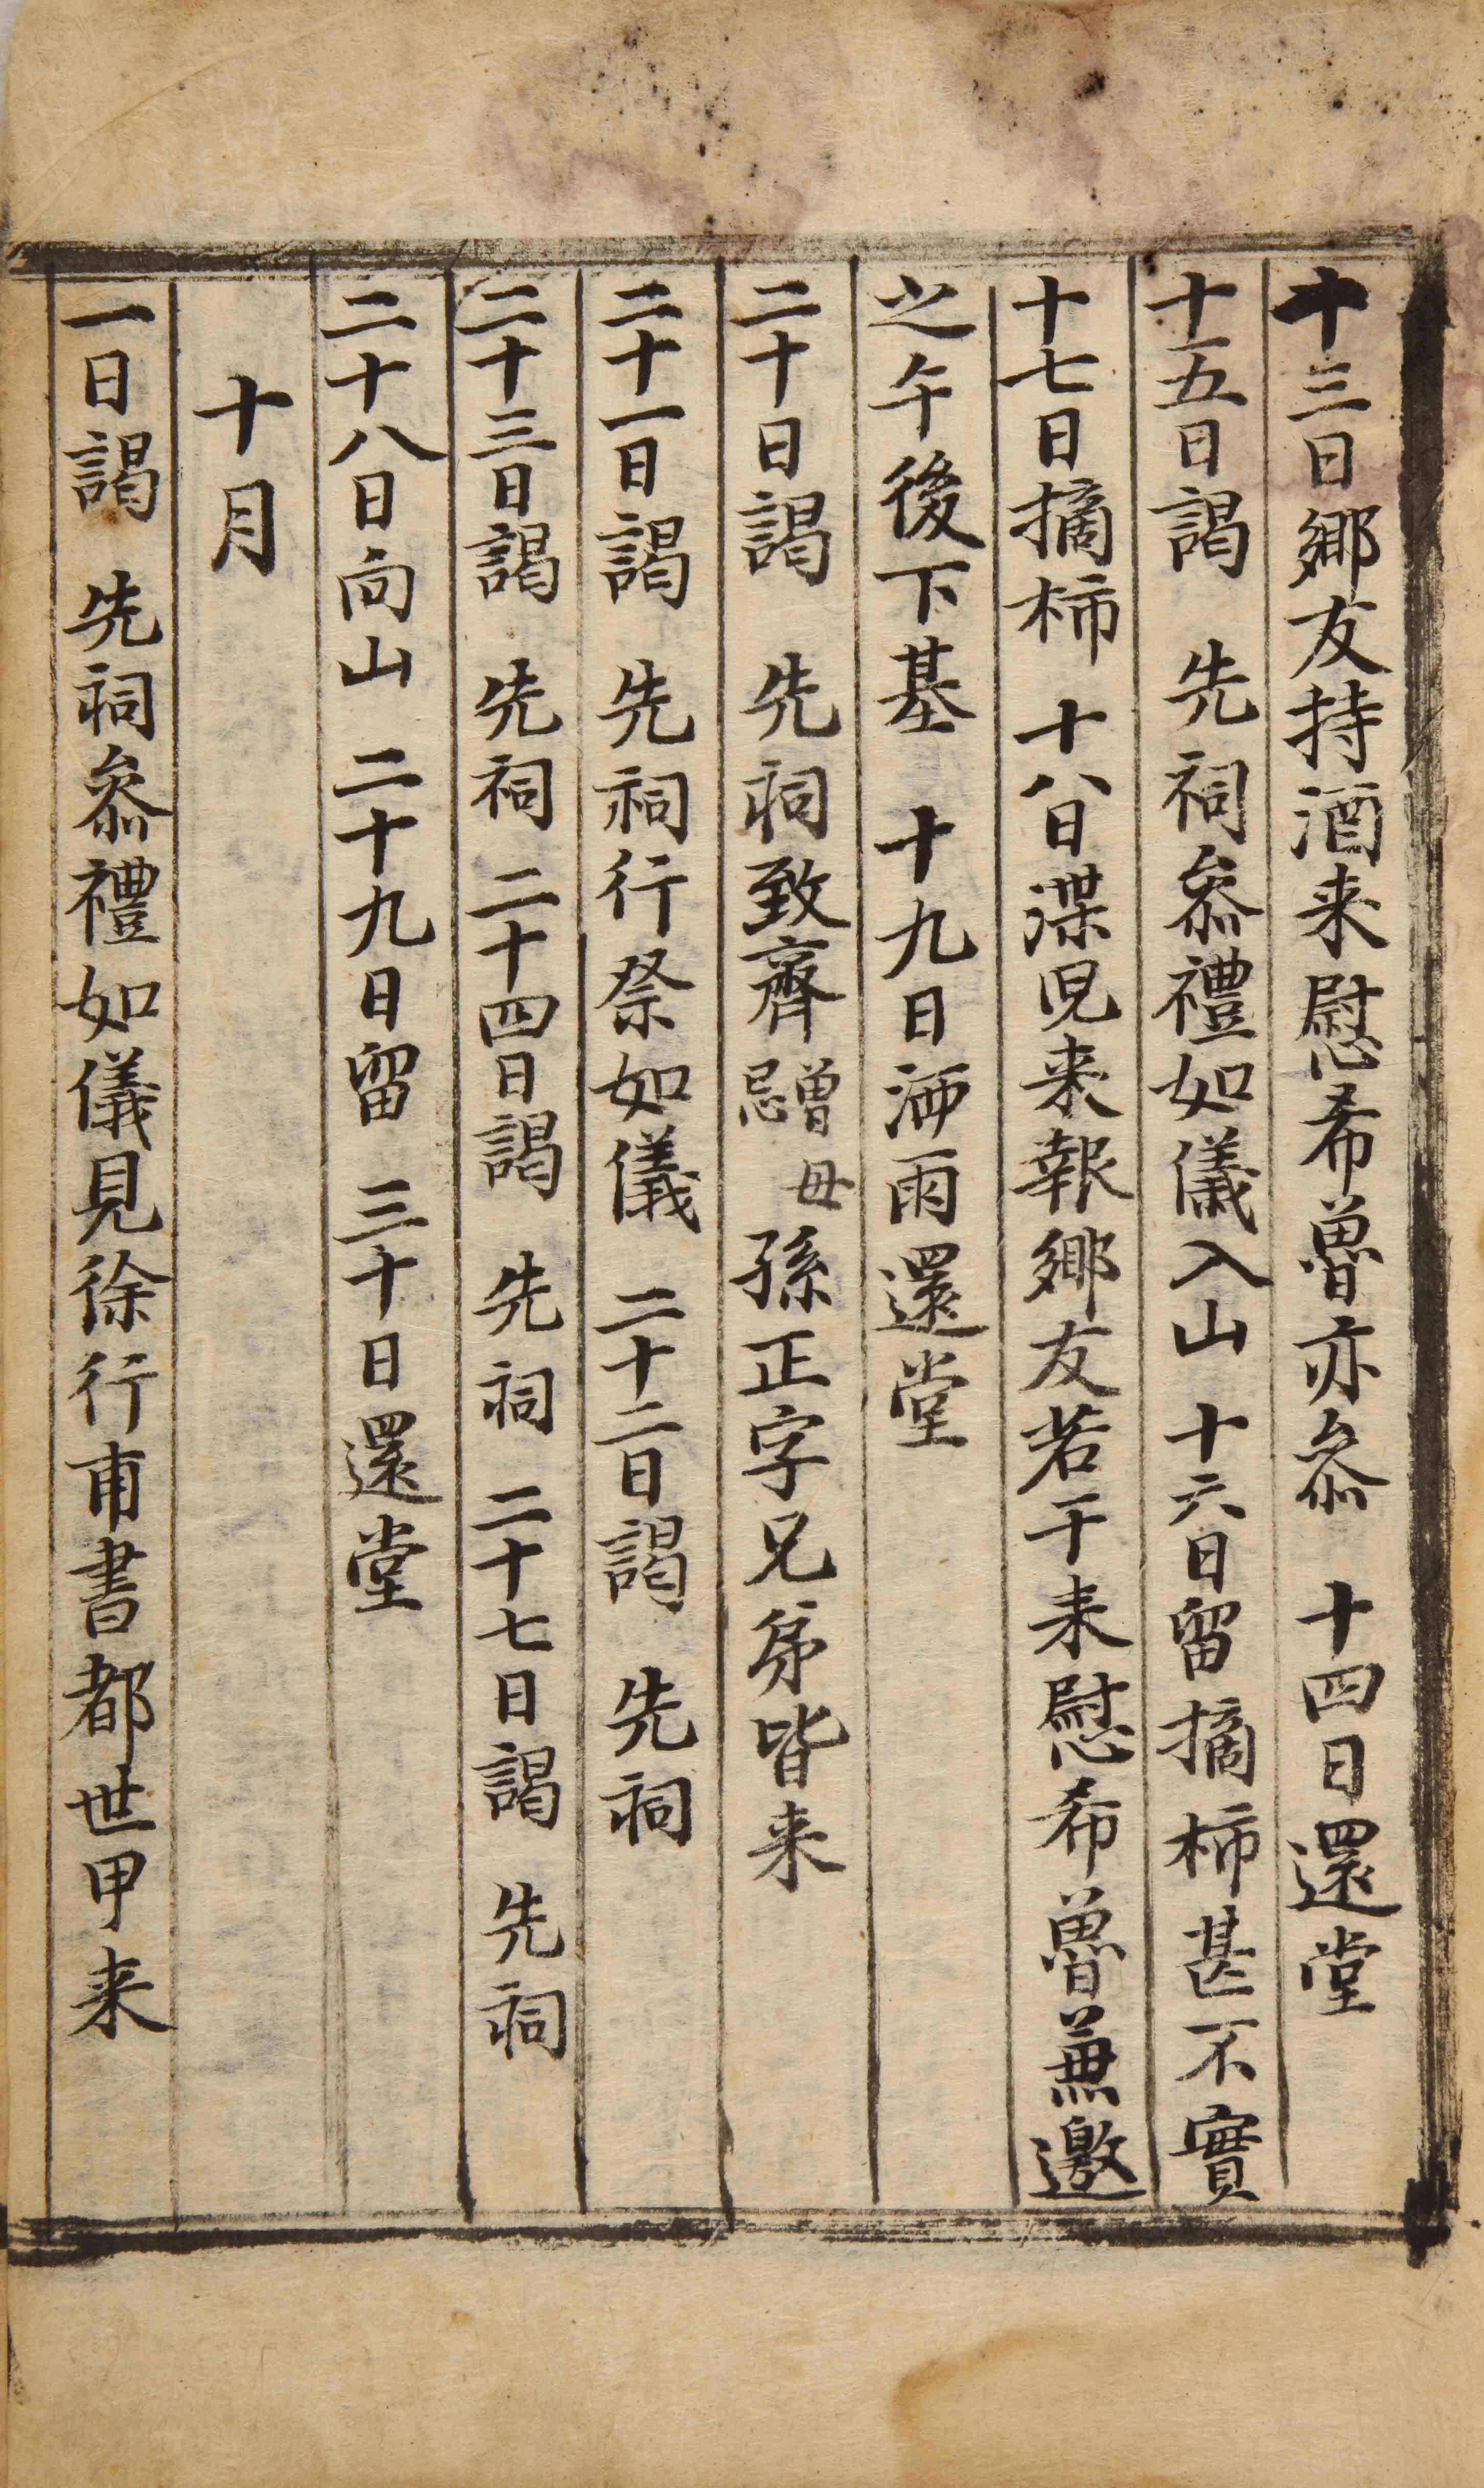 十三日鄉友持酒来慰希魯亦叅　十四日還堂
十五日謁　先祠叅禮如儀入山　十六日留摘柿甚不實
十七日摘柿　十八日渫児来報鄉友若干来慰希魯兼邀
之午後下基　十九日洒雨還堂
二十日謁　先祠致齊曽母忌孫正字兄弟皆来
二十一日謁　先祠行祭如儀　二十二日謁　先祠
二十三日謁　先祠　二十四日謁　先祠　二十七日謁　先祠
二十八日向山　二十九日留　三十日還堂
十月
一日謁　先祠叅禮如儀見徐行甫書都世甲来